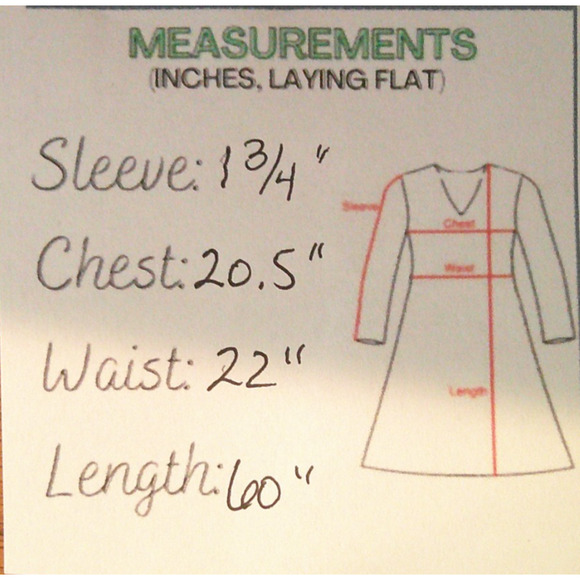 MEASUREMENTS
(INCHES, LAYING FLAT)
Sleeve: 1 3/4"
Chest: 20.5"
Waist: 22"
Length: 60"
Sleeve
Chest
Waist
Length